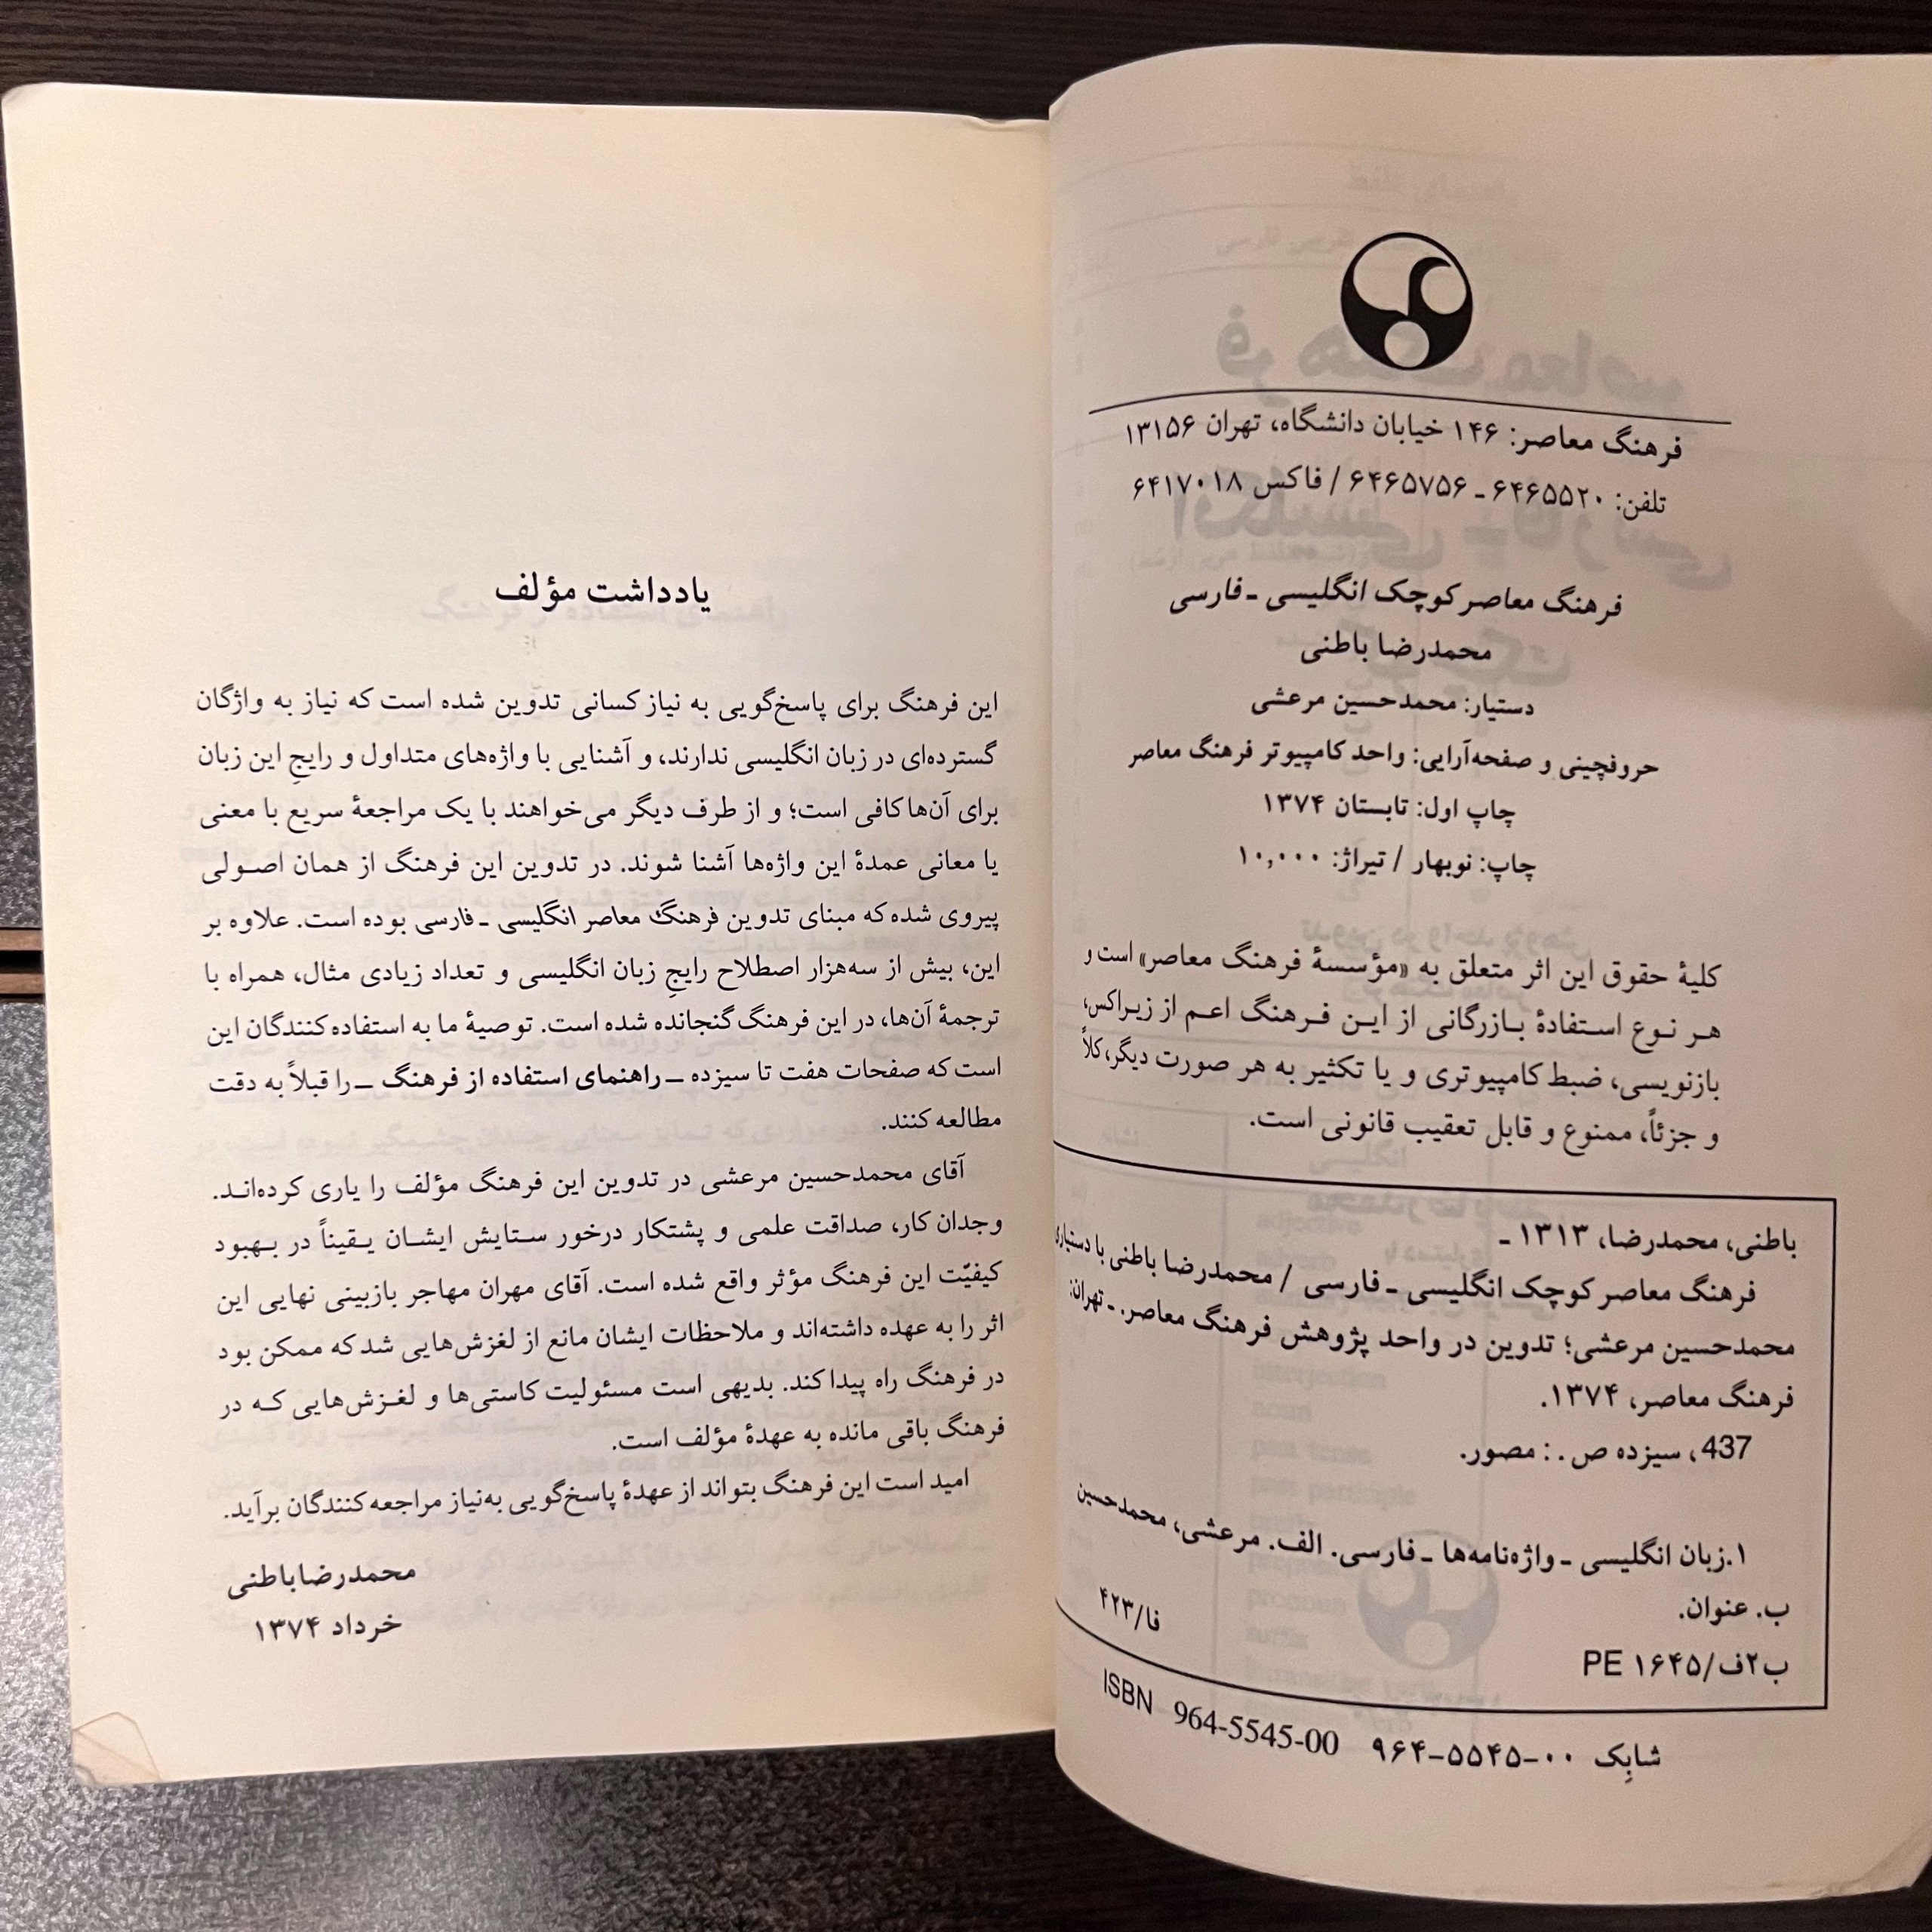 فرهنگ معاصر: ۱۴۶ خیابان دانشگاه، تهران ۱۳۱۵۶
تلفن: ۶۴۶۵۵۲۰ ـ ۶۴۶۵۷۵۶ / فاکس ۶۴۱۷۰۱۸
فرهنگ معاصر کوچک انگلیسی ـ فارسی
محمدرضا باطنی
دستیار: محمدحسین مرعشی
حروفچینی و صفحه‌آرایی: واحد کامپیوتر فرهنگ معاصر
چاپ اول: تابستان ۱۳۷۴
چاپ: نوبهار / تیراژ: ۱۰,۰۰۰
کلیهٔ حقوق این اثر متعلق به «مؤسسهٔ فرهنگ معاصر» است و
هر نوع استفادهٔ بازرگانی از این فرهنگ اعم از زیراکس،
بازنویسی، ضبط کامپیوتری و یا تکثیر به هر صورت دیگر، کلاً
و جزئاً، ممنوع و قابل تعقیب قانونی است.
باطنی، محمدرضا، ۱۳۱۳ ـ
فرهنگ معاصر کوچک انگلیسی ـ فارسی / محمدرضا باطنی با دستیاری
محمدحسین مرعشی؛ تدوین در واحد پژوهش فرهنگ معاصر. ـ تهران:
فرهنگ معاصر، ۱۳۷۴.
437، سیزده ص. : مصور.
۱.زبان انگلیسی ـ واژه‌نامه‌ها ـ فارسی. الف. مرعشی، محمدحسین
ب. عنوان.
فا/۴۲۳
ب۲ف/۱۶۴۵ PE
شابِک ۰۰-۵۵۴۵-۹۶۴ ISBN 964-5545-00
یادداشت مؤلف
این فرهنگ برای پاسخ‌گویی به نیاز کسانی تدوین شده است که نیاز به واژگان
گسترده‌ای در زبان انگلیسی ندارند، و آشنایی با واژه‌های متداول و رایجِ این زبان
برای آن‌ها کافی است؛ و از طرف دیگر می‌خواهند با یک مراجعهٔ سریع با معنی
یا معانی عمدهٔ این واژه‌ها آشنا شوند. در تدوین این فرهنگ از همان اصولی
پیروی شده که مبنای تدوین فرهنگ معاصر انگلیسی ـ فارسی بوده است. علاوه بر
این، بیش از سه‌هزار اصطلاح رایجِ زبان انگلیسی و تعداد زیادی مثال، همراه با
ترجمهٔ آن‌ها، در این فرهنگ گنجانده شده است. توصیهٔ ما به استفاده‌کنندگان این
است که صفحات هفت تا سیزده ــ راهنمای استفاده از فرهنگ ــ را قبلاً به دقت
مطالعه کنند.
آقای محمدحسین مرعشی در تدوین این فرهنگ مؤلف را یاری کرده‌اند.
وجدان کار، صداقت علمی و پشتکار درخور ستایش ایشان یقیناً در بهبود
کیفیّت این فرهنگ مؤثر واقع شده است. آقای مهران مهاجر بازبینی نهایی این
اثر را به عهده داشته‌اند و ملاحظات ایشان مانع از لغزش‌هایی شد که ممکن بود
در فرهنگ راه پیدا کند. بدیهی است مسئولیت کاستی‌ها و لغزش‌هایی که در
فرهنگ باقی مانده به عهدهٔ مؤلف است.
امید است این فرهنگ بتواند از عهدهٔ پاسخ‌گویی به‌نیاز مراجعه‌کنندگان برآید.
محمدرضا باطنی
خرداد ۱۳۷۴